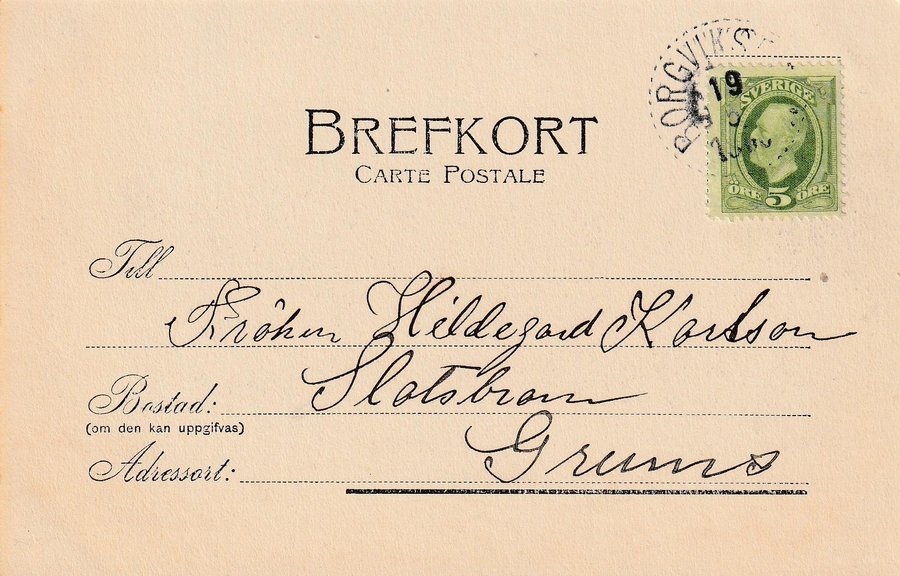 BORGVIKS
19
SVERIGE
ÖRE 5 ÖRE
BREFKORT
CARTE POSTALE
Till
Fröken Hildegard Karlson
Bostad: Slotsbron
(om den kan uppgifvas)
Adressort: Grums